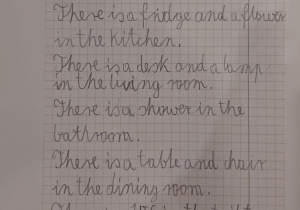 There is a fridge and a flower
in the kitchen.
There is a desk and a lamp
in the living room.
There is a shower in the
bathroom.
There is a table and chair
in the dining room.